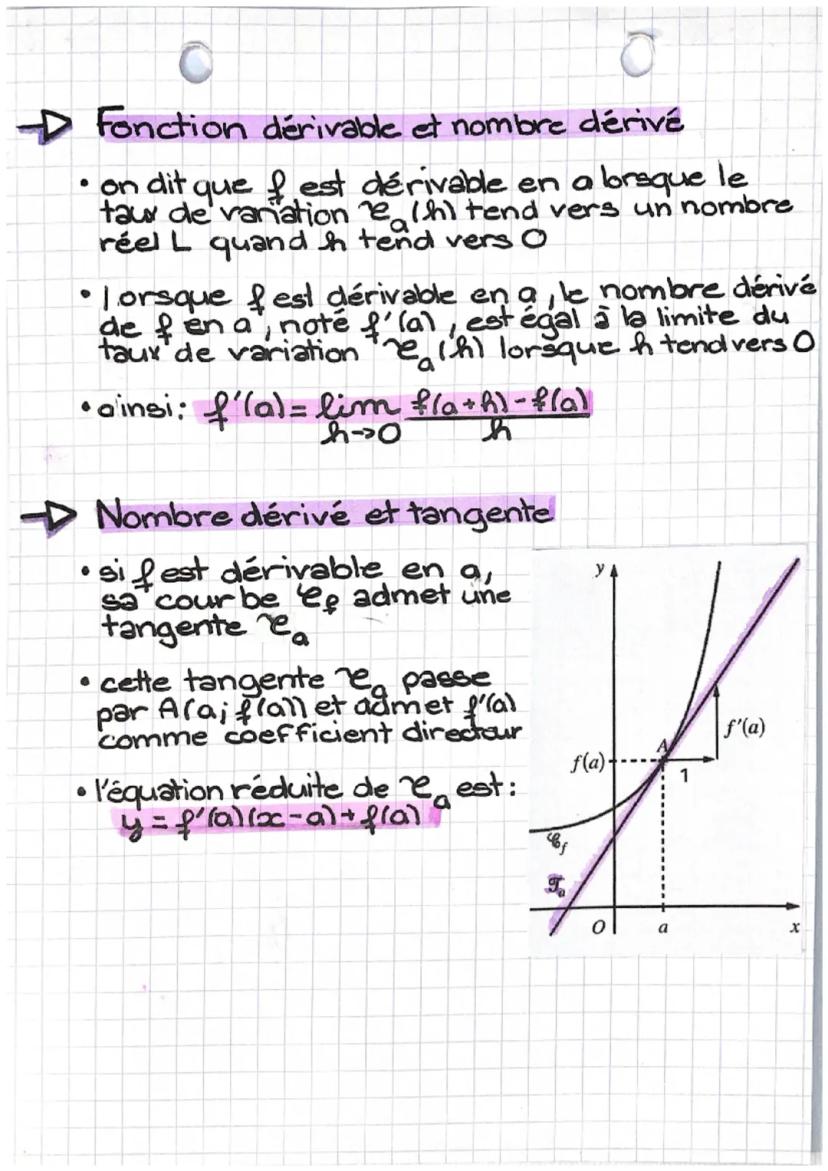 Fonction dérivable et nombre dérivé
• on dit que f est dérivable en a lorsque le
taux de variation 𝒞a(h) tend vers un nombre
réel L quand h tend vers 0
• lorsque f est dérivable en a, le nombre dérivé
de f en a, noté f'(a), est égal à la limite du
taux de variation 𝒞a(h) lorsque h tend vers 0
• ainsi: f'(a) = lim f(a+h)-f(a)
h→0 h
Nombre dérivé et tangente
• si f est dérivable en a,
sa courbe 𝒞f admet une
tangente 𝒞a
• cette tangente 𝒞a passe
par A(a; f(a)) et admet f'(a)
comme coefficient directeur
• l'équation réduite de 𝒞a est:
y = f'(a)(x-a)+f(a)
y
f'(a)
A
f(a)
1
𝒞f
𝒯a
O a x